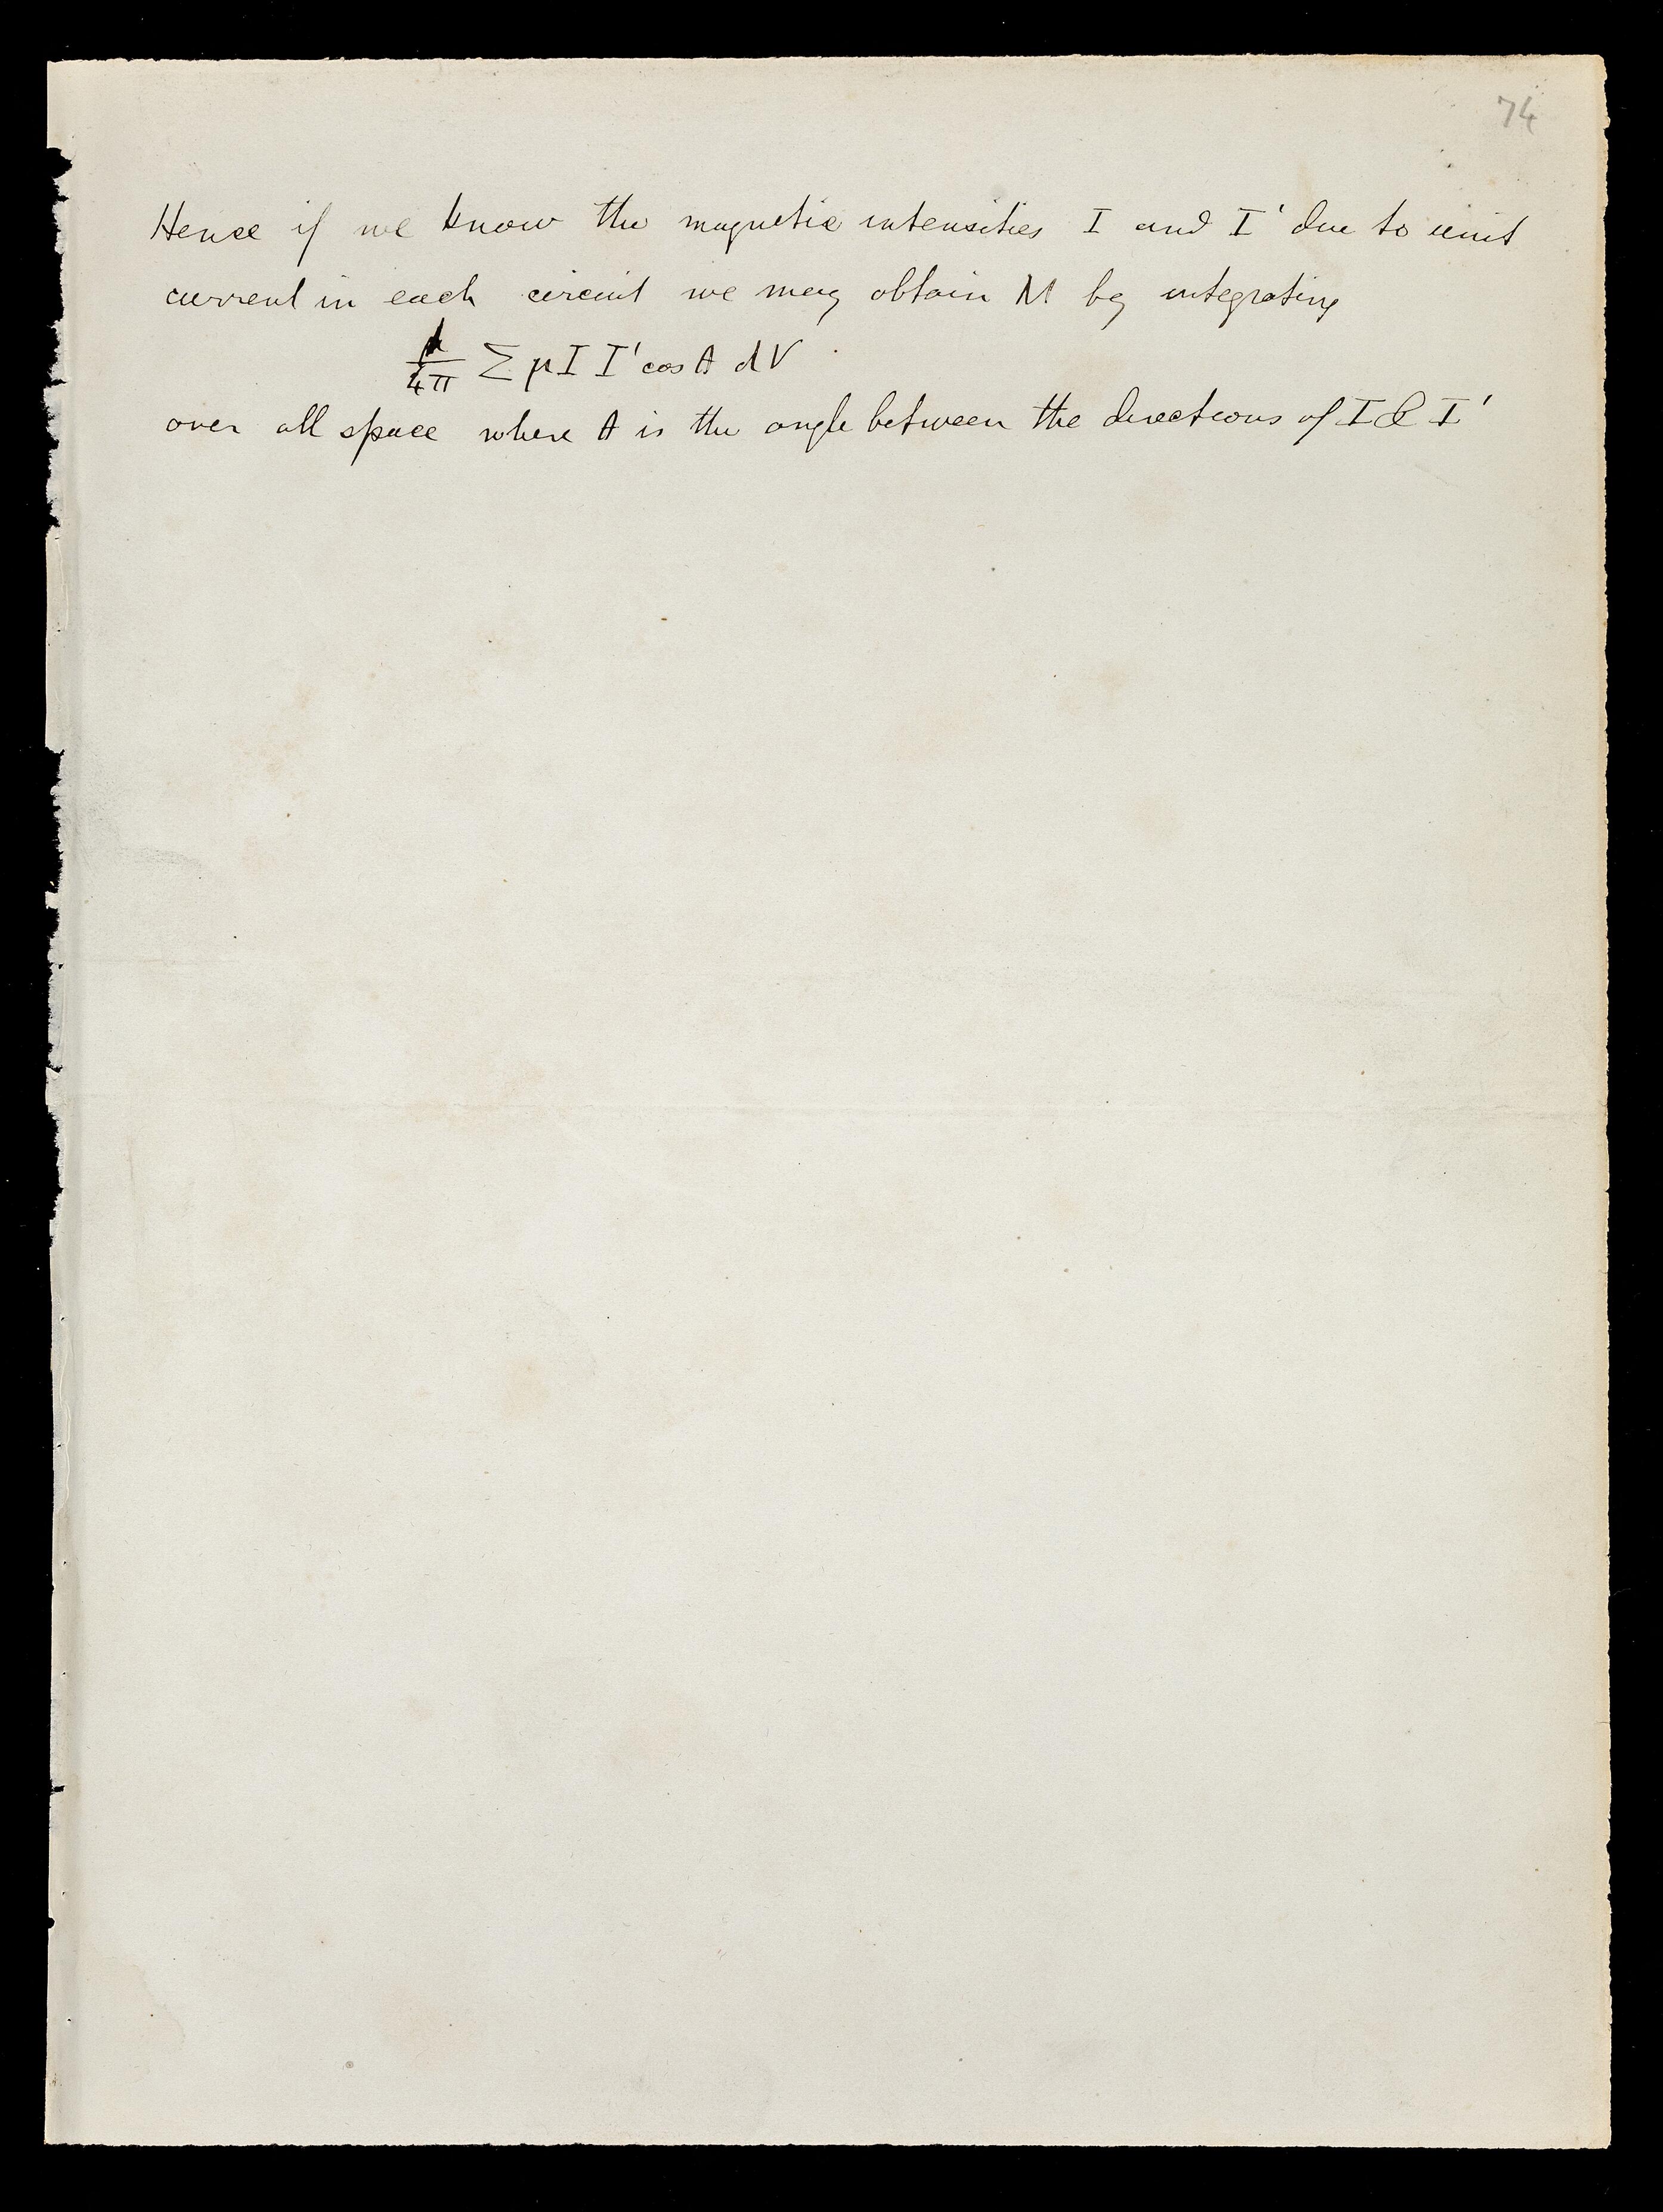 74
Hence if we know the magnetic intensities I and I' due to unit
current in each circuit we may obtain M by integrating
1/4π Σ μ I I' cos θ dV
over all space where θ is the angle between the directions of I & I'